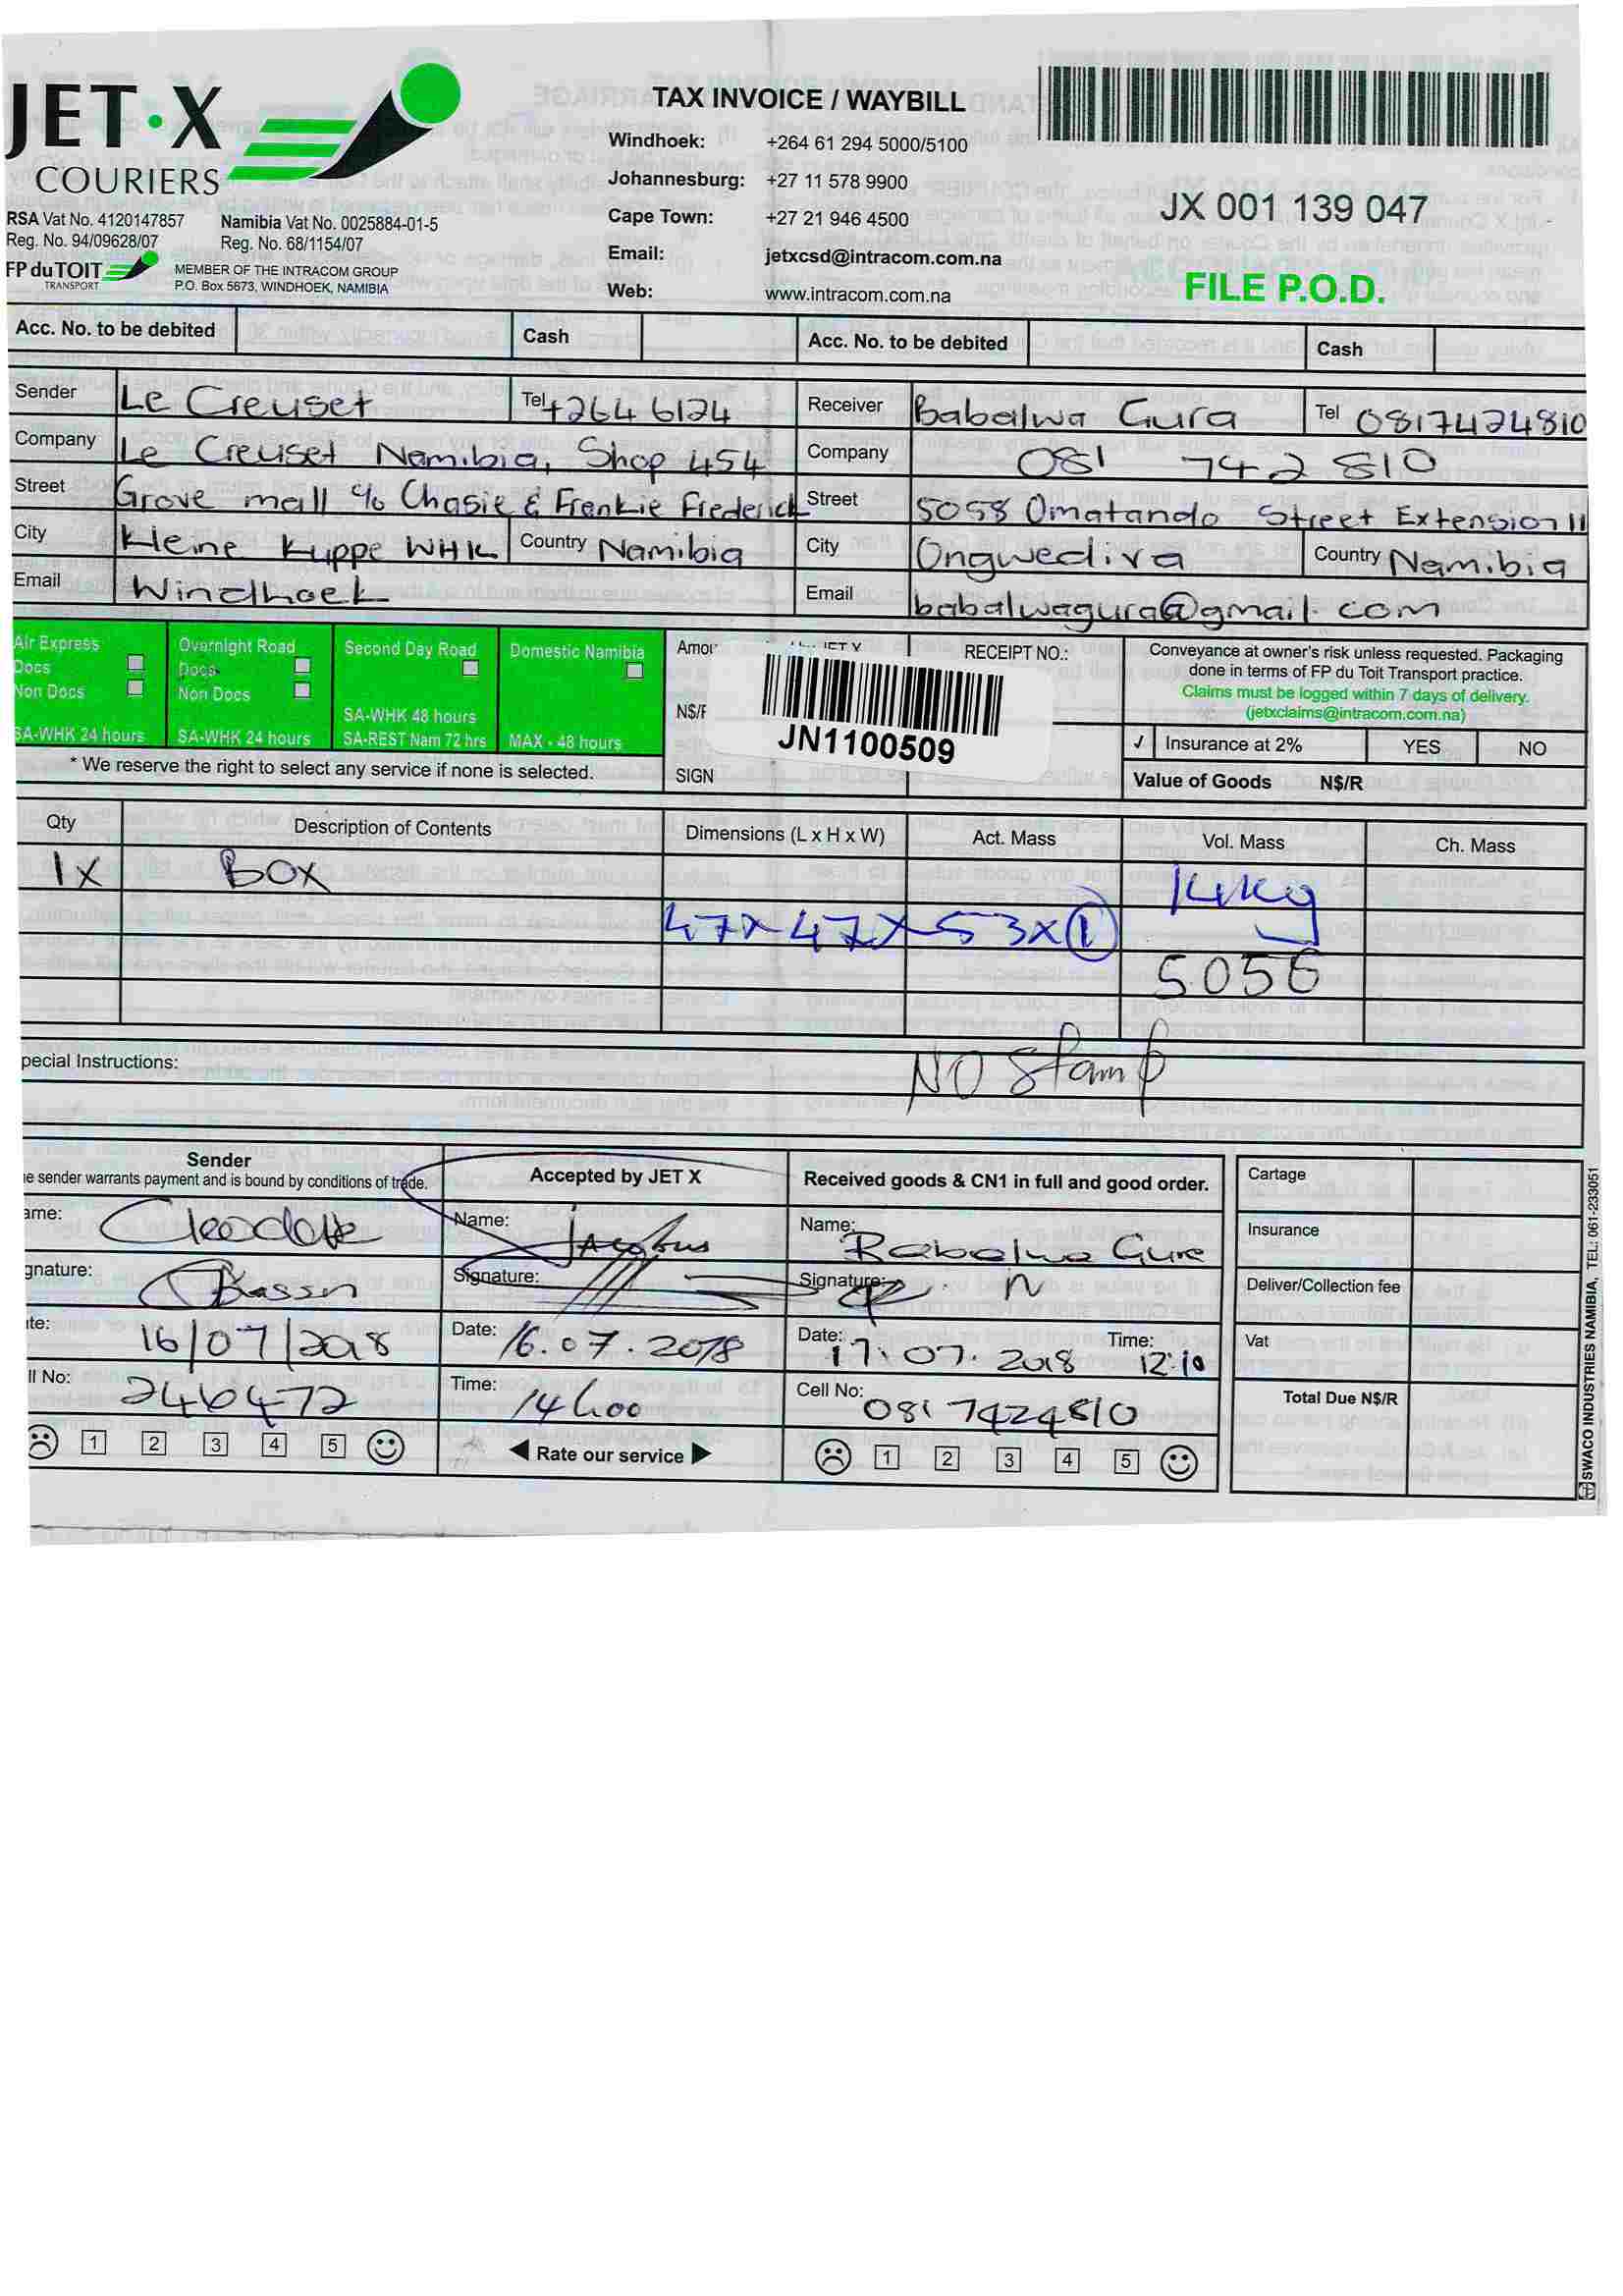 JET·X
COURIERS
RSA Vat No. 4120147857 Namibia Vat No. 0025884-01-5
Reg. No. 94/09628/07 Reg. No. 68/1154/07
FP du TOIT
TRANSPORT
MEMBER OF THE INTRACOM GROUP
P.O. Box 5673, WINDHOEK, NAMIBIA
TAX INVOICE / WAYBILL
Windhoek: +264 61 294 5000/5100
Johannesburg: +27 11 578 9900
Cape Town: +27 21 946 4500
Email: jetxcsd@intracom.com.na
Web: www.intracom.com.na
JX 001 139 047
FILE P.O.D.
Acc. No. to be debited Cash Acc. No. to be debited Cash
Sender Le Creuset Tel +264 6124
Company Le Creuset Namibia, Shop 454
Street Grove mall c/o Chasie & Frankie Frederick
City Kleine Kuppe WHK Country Namibia
Email Windhoek
Receiver Babalwa Gura Tel 0817424810
Company 081 742 810
Street 5058 Omatando Street Extension 11
City Ongwediva Country Namibia
Email babalwagura@gmail.com
Air Express
Docs
Non Docs
SA-WHK 24 hours
Overnight Road
Docs
Non Docs
SA-WHK 24 hours
Second Day Road
SA-WHK 48 hours
SA-REST Nam 72 hrs
Domestic Namibia
MAX - 48 hours
* We reserve the right to select any service if none is selected.
JET X
N$/
SIGN
JN1100509
RECEIPT NO.:
Conveyance at owner's risk unless requested. Packaging
done in terms of FP du Toit Transport practice.
Claims must be logged within 7 days of delivery.
(jetxclaims@intracom.com.na)
✓ Insurance at 2% YES NO
Value of Goods N$/R
Qty Description of Contents Dimensions (L x H x W) Act. Mass Vol. Mass Ch. Mass
1x Box 14kg
47x47x53x1
5056
pecial Instructions: NO Stamp
Sender
e sender warrants payment and is bound by conditions of trade.
ame:
gnature:
te: 16/07/2018
ll No: 246472
1 2 3 4 5
Accepted by JET X
Name: Jacobus
Signature:
Date: 16.07.2018
Time: 14h00
◀ Rate our service ▶
Received goods & CN1 in full and good order.
Name: Babalwa Gura
Signature:
Date: 17.07.2018 Time: 12:10
Cell No: 0817424810
1 2 3 4 5
Cartage
Insurance
Deliver/Collection fee
Vat
Total Due N$/R
SWACO INDUSTRIES NAMIBIA, TEL: 061-233051